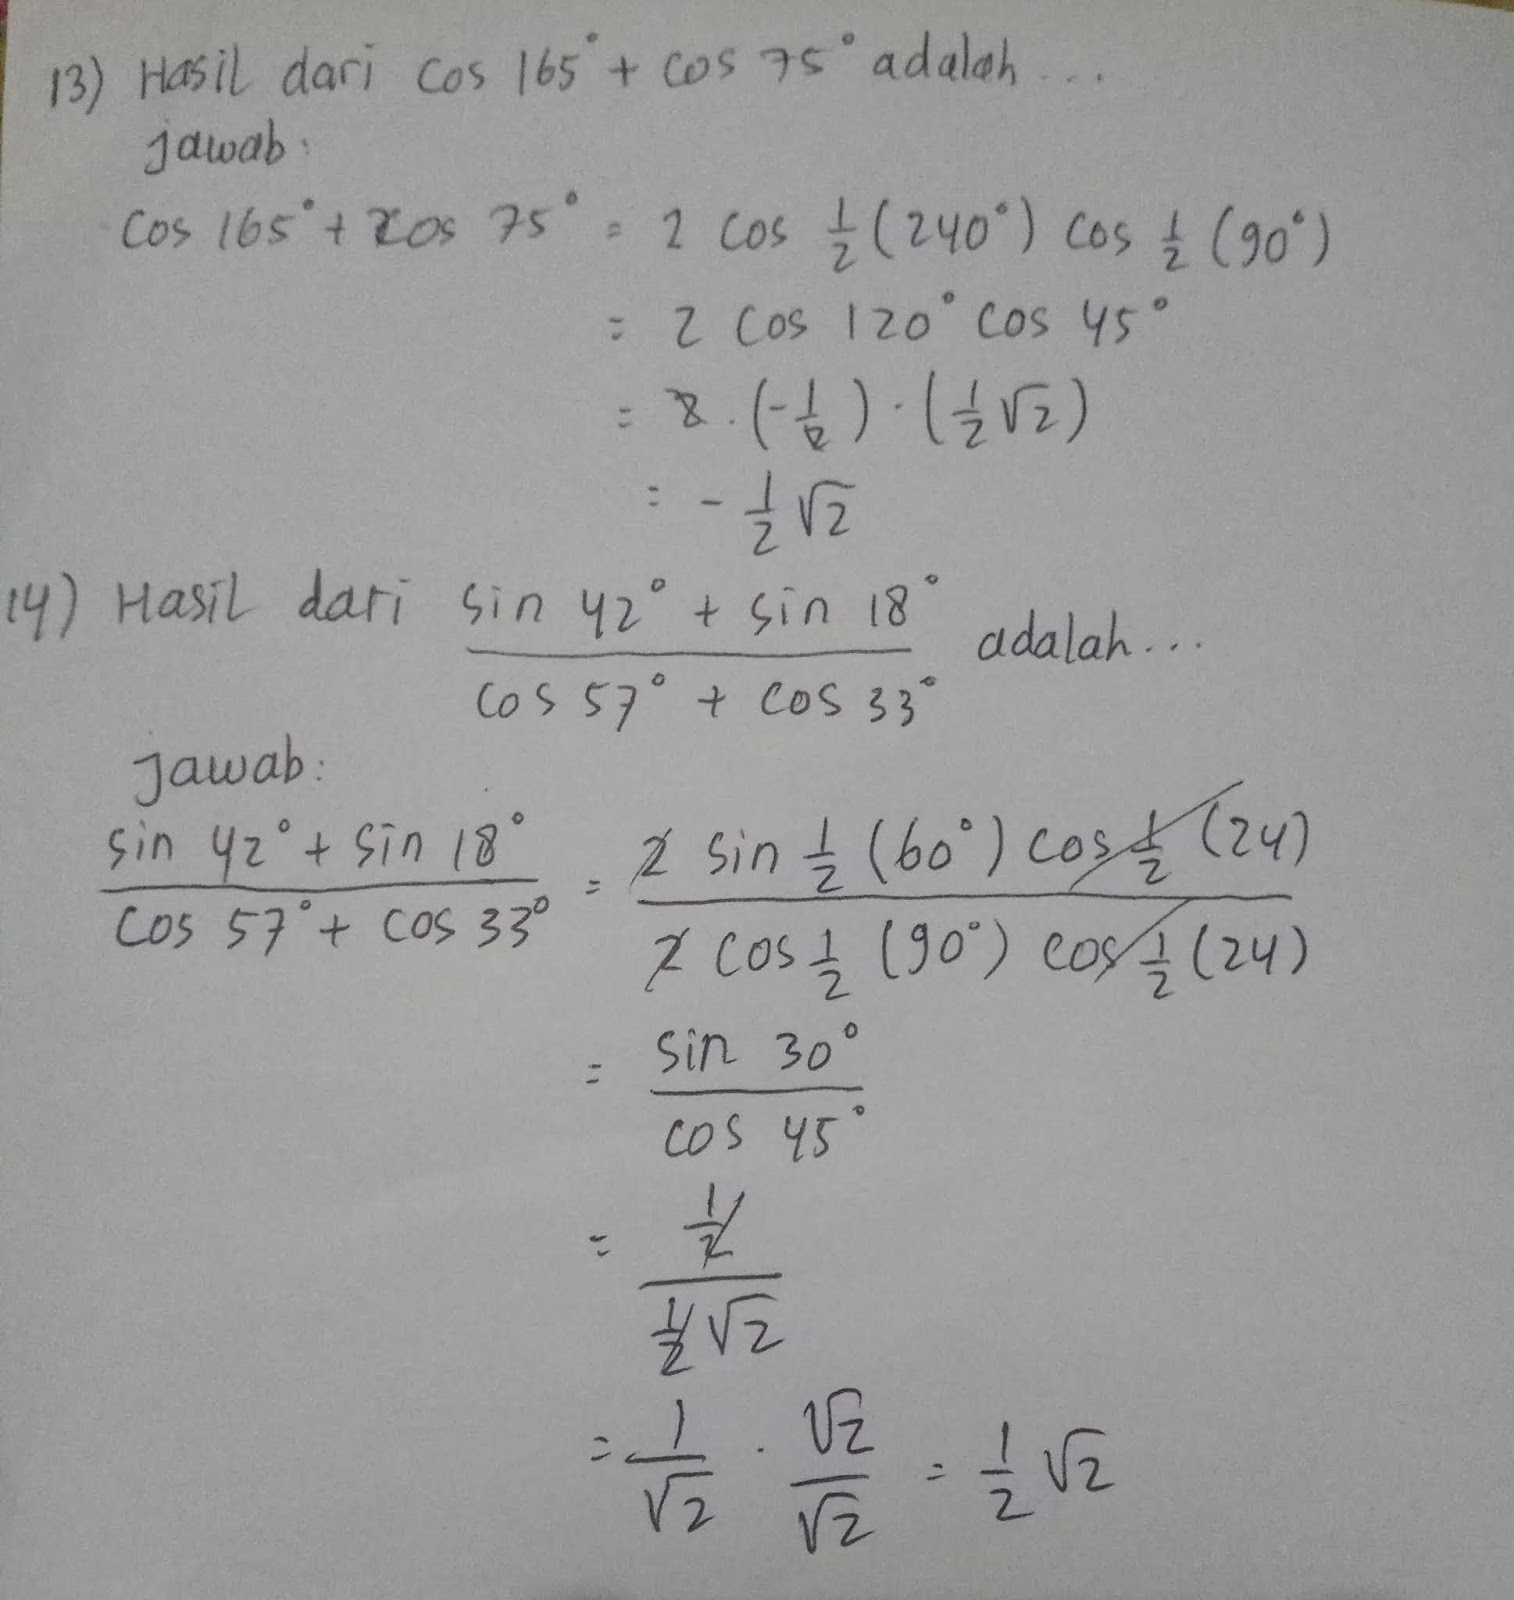 13) Hasil dari cos 165° + cos 75° adalah ...
jawab:
cos 165° + cos 75° = 2 cos 1/2 (240°) cos 1/2 (90°)
= 2 cos 120° cos 45°
= 2 . (-1/2) . (1/2 √2)
= - 1/2 √2
14) Hasil dari (sin 42° + sin 18°) / (cos 57° + cos 33°) adalah...
jawab:
(sin 42° + sin 18°) / (cos 57° + cos 33°) = (2 sin 1/2 (60°) cos 1/2 (24)) / (2 cos 1/2 (90°) cos 1/2 (24))
= sin 30° / cos 45°
= (1/2) / (1/2 √2)
= 1/√2 . √2/√2 = 1/2 √2